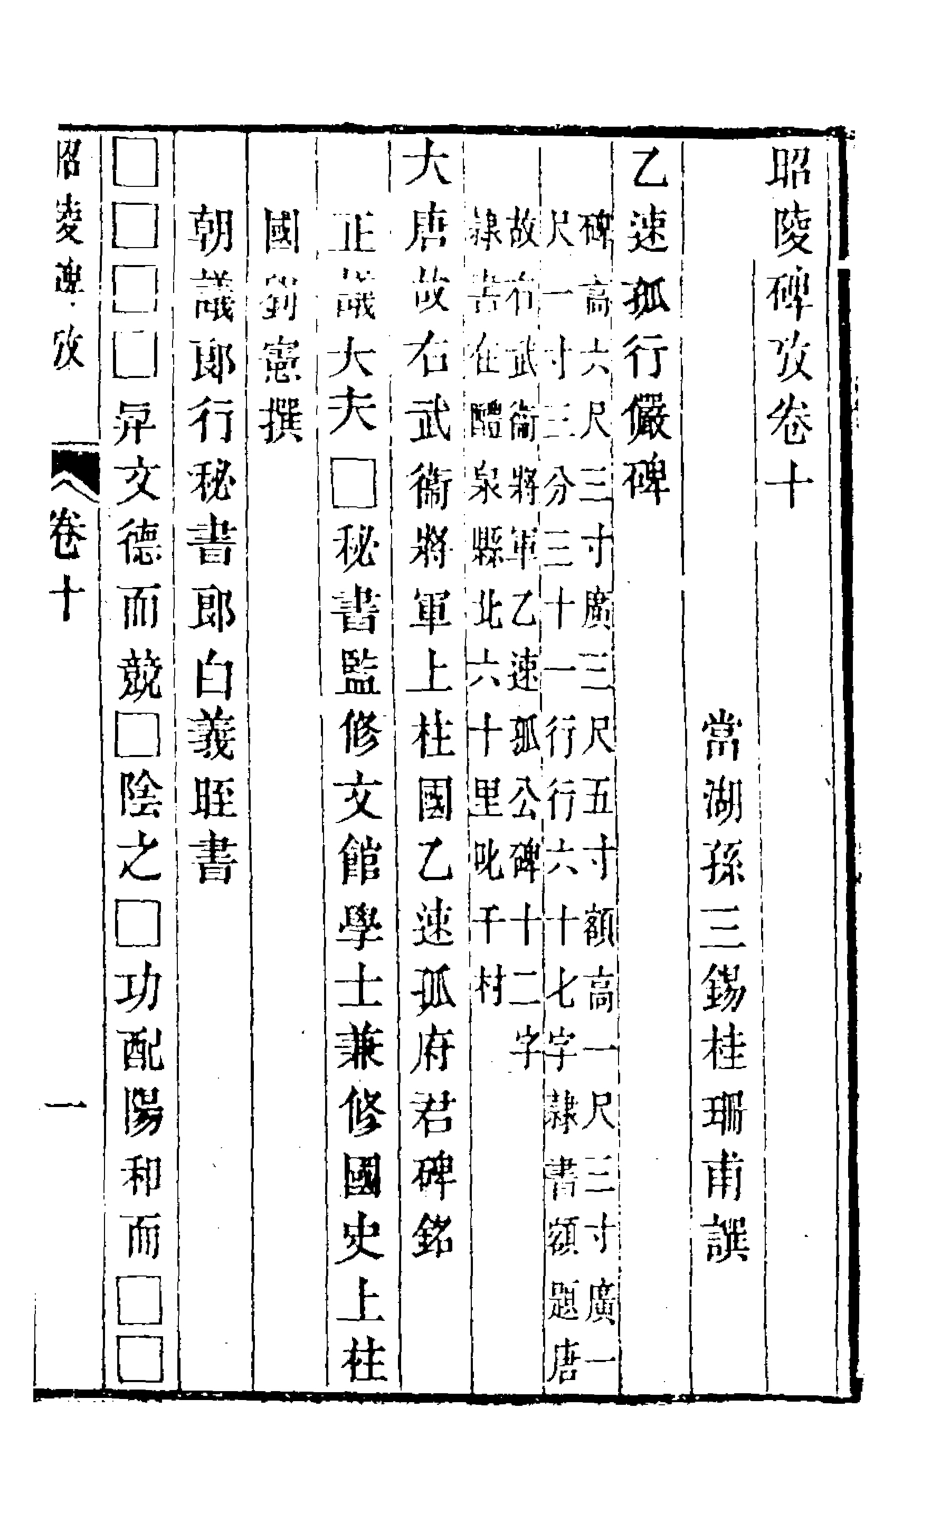 昭陵碑攷卷十
當湖孫三錫桂珊甫譔
乙速孤行儼碑
碑高六尺三寸廣三尺五寸額高一尺三寸廣一
尺一寸三分三十一行行六十七字隸書額題唐
故右武衞將軍乙速孤公碑十二字
隸書在醴泉縣北六十里叱干村
大唐故右武衞將軍上柱國乙速孤府君碑銘
正議大夫□秘書監修文館學士兼修國史上柱
國劉憲撰
朝議郎行秘書郎白義晊書
□□□□昇文德而競□陰之□功配陽和而□□
昭陵碑攷
卷十
一